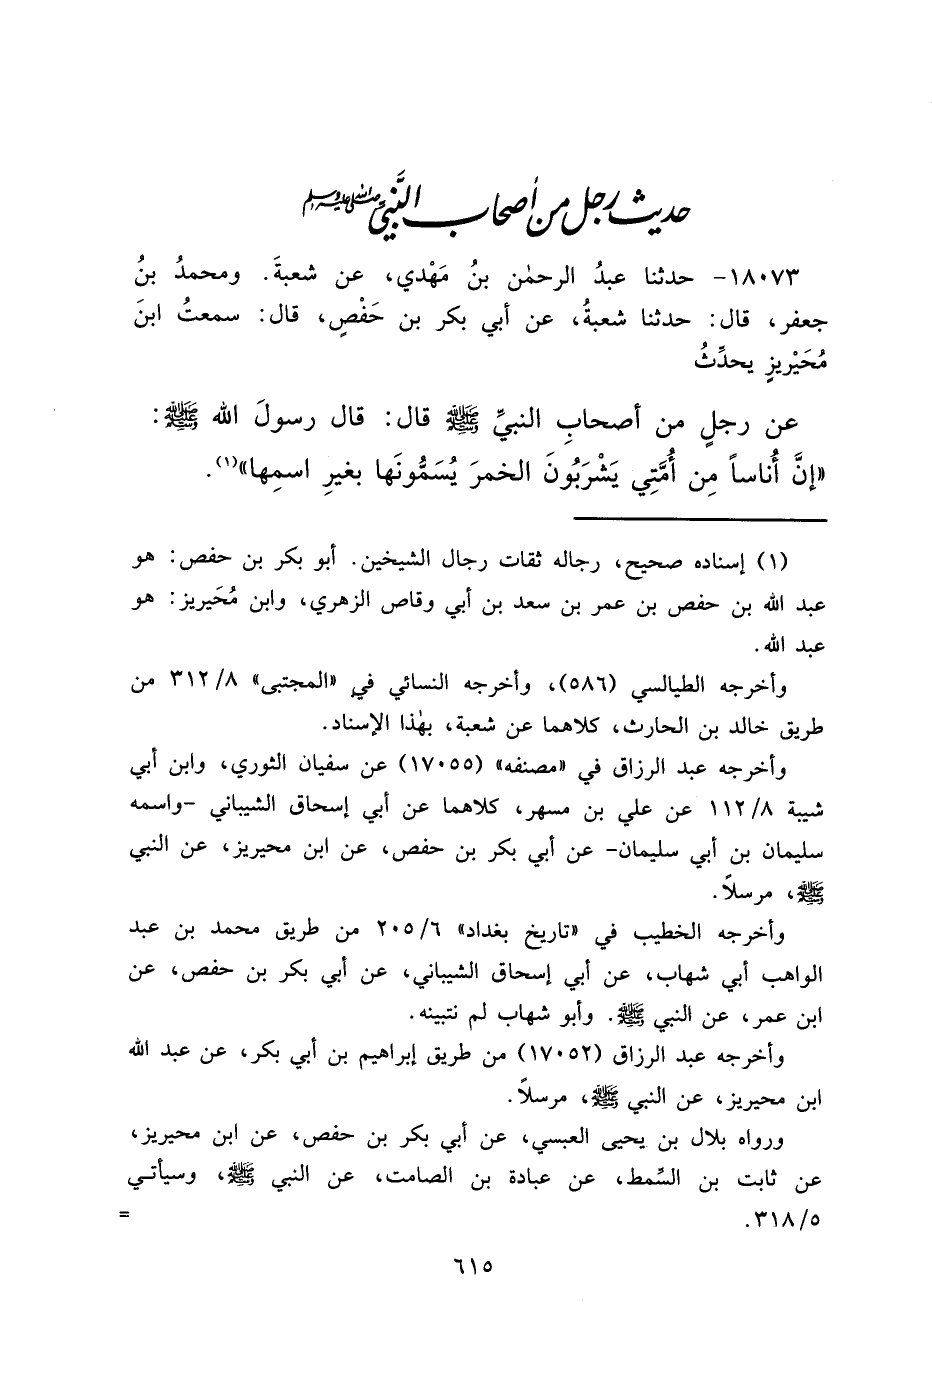 حديث رجل من أصحاب النَّبيِّ صلى الله عليه وسلم
١٨٠٧٣- حدثنا عبدُ الرحمٰن بنُ مَهْدي، عن شعبةَ. ومحمدُ بنُ
جعفر، قال: حدثنا شعبةُ، عن أبي بكر بن حَفْصٍ، قال: سمعتُ ابنَ
مُحَيْريزٍ يحدِّثُ
عن رجلٍ من أصحابِ النبيِّ ﷺ قال: قال رسولَ الله ﷺ:
«إنَّ أُناساً مِن أُمَّتِي يَشْرَبُونَ الخمرَ يُسَمُّونَها بغيرِ اسمِها»(١).
(١) إسناده صحيح، رجاله ثقات رجال الشيخين. أبو بكر بن حفص: هو
عبد الله بن حفص بن عمر بن سعد بن أبي وقاص الزهري، وابن مُحَيريز: هو
عبد الله.
وأخرجه الطيالسي (٥٨٦)، وأخرجه النسائي في «المجتبى» ٣١٢/٨ من
طريق خالد بن الحارث، كلاهما عن شعبة، بهٰذا الإسناد.
وأخرجه عبد الرزاق في «مصنفه» (١٧٠٥٥) عن سفيان الثوري، وابن أبي
شيبة ١١٢/٨ عن علي بن مسهر، كلاهما عن أبي إسحاق الشيباني -واسمه
سليمان بن أبي سليمان- عن أبي بكر بن حفص، عن ابن محيريز، عن النبي
ﷺ، مرسلاً.
وأخرجه الخطيب في «تاريخ بغداد» ٢٠٥/٦ من طريق محمد بن عبد
الواهب أبي شهاب، عن أبي إسحاق الشيباني، عن أبي بكر بن حفص، عن
ابن عمر، عن النبي ﷺ. وأبو شهاب لم نتبينه.
وأخرجه عبد الرزاق (١٧٠٥٢) من طريق إبراهيم بن أبي بكر، عن عبد الله
ابن محيريز، عن النبي ﷺ، مرسلاً.
ورواه بلال بن يحيى العبسي، عن أبي بكر بن حفص، عن ابن محيريز،
عن ثابت بن السِّمط، عن عبادة بن الصامت، عن النبي ﷺ، وسيأتي
٣١٨/٥. =
٦١٥